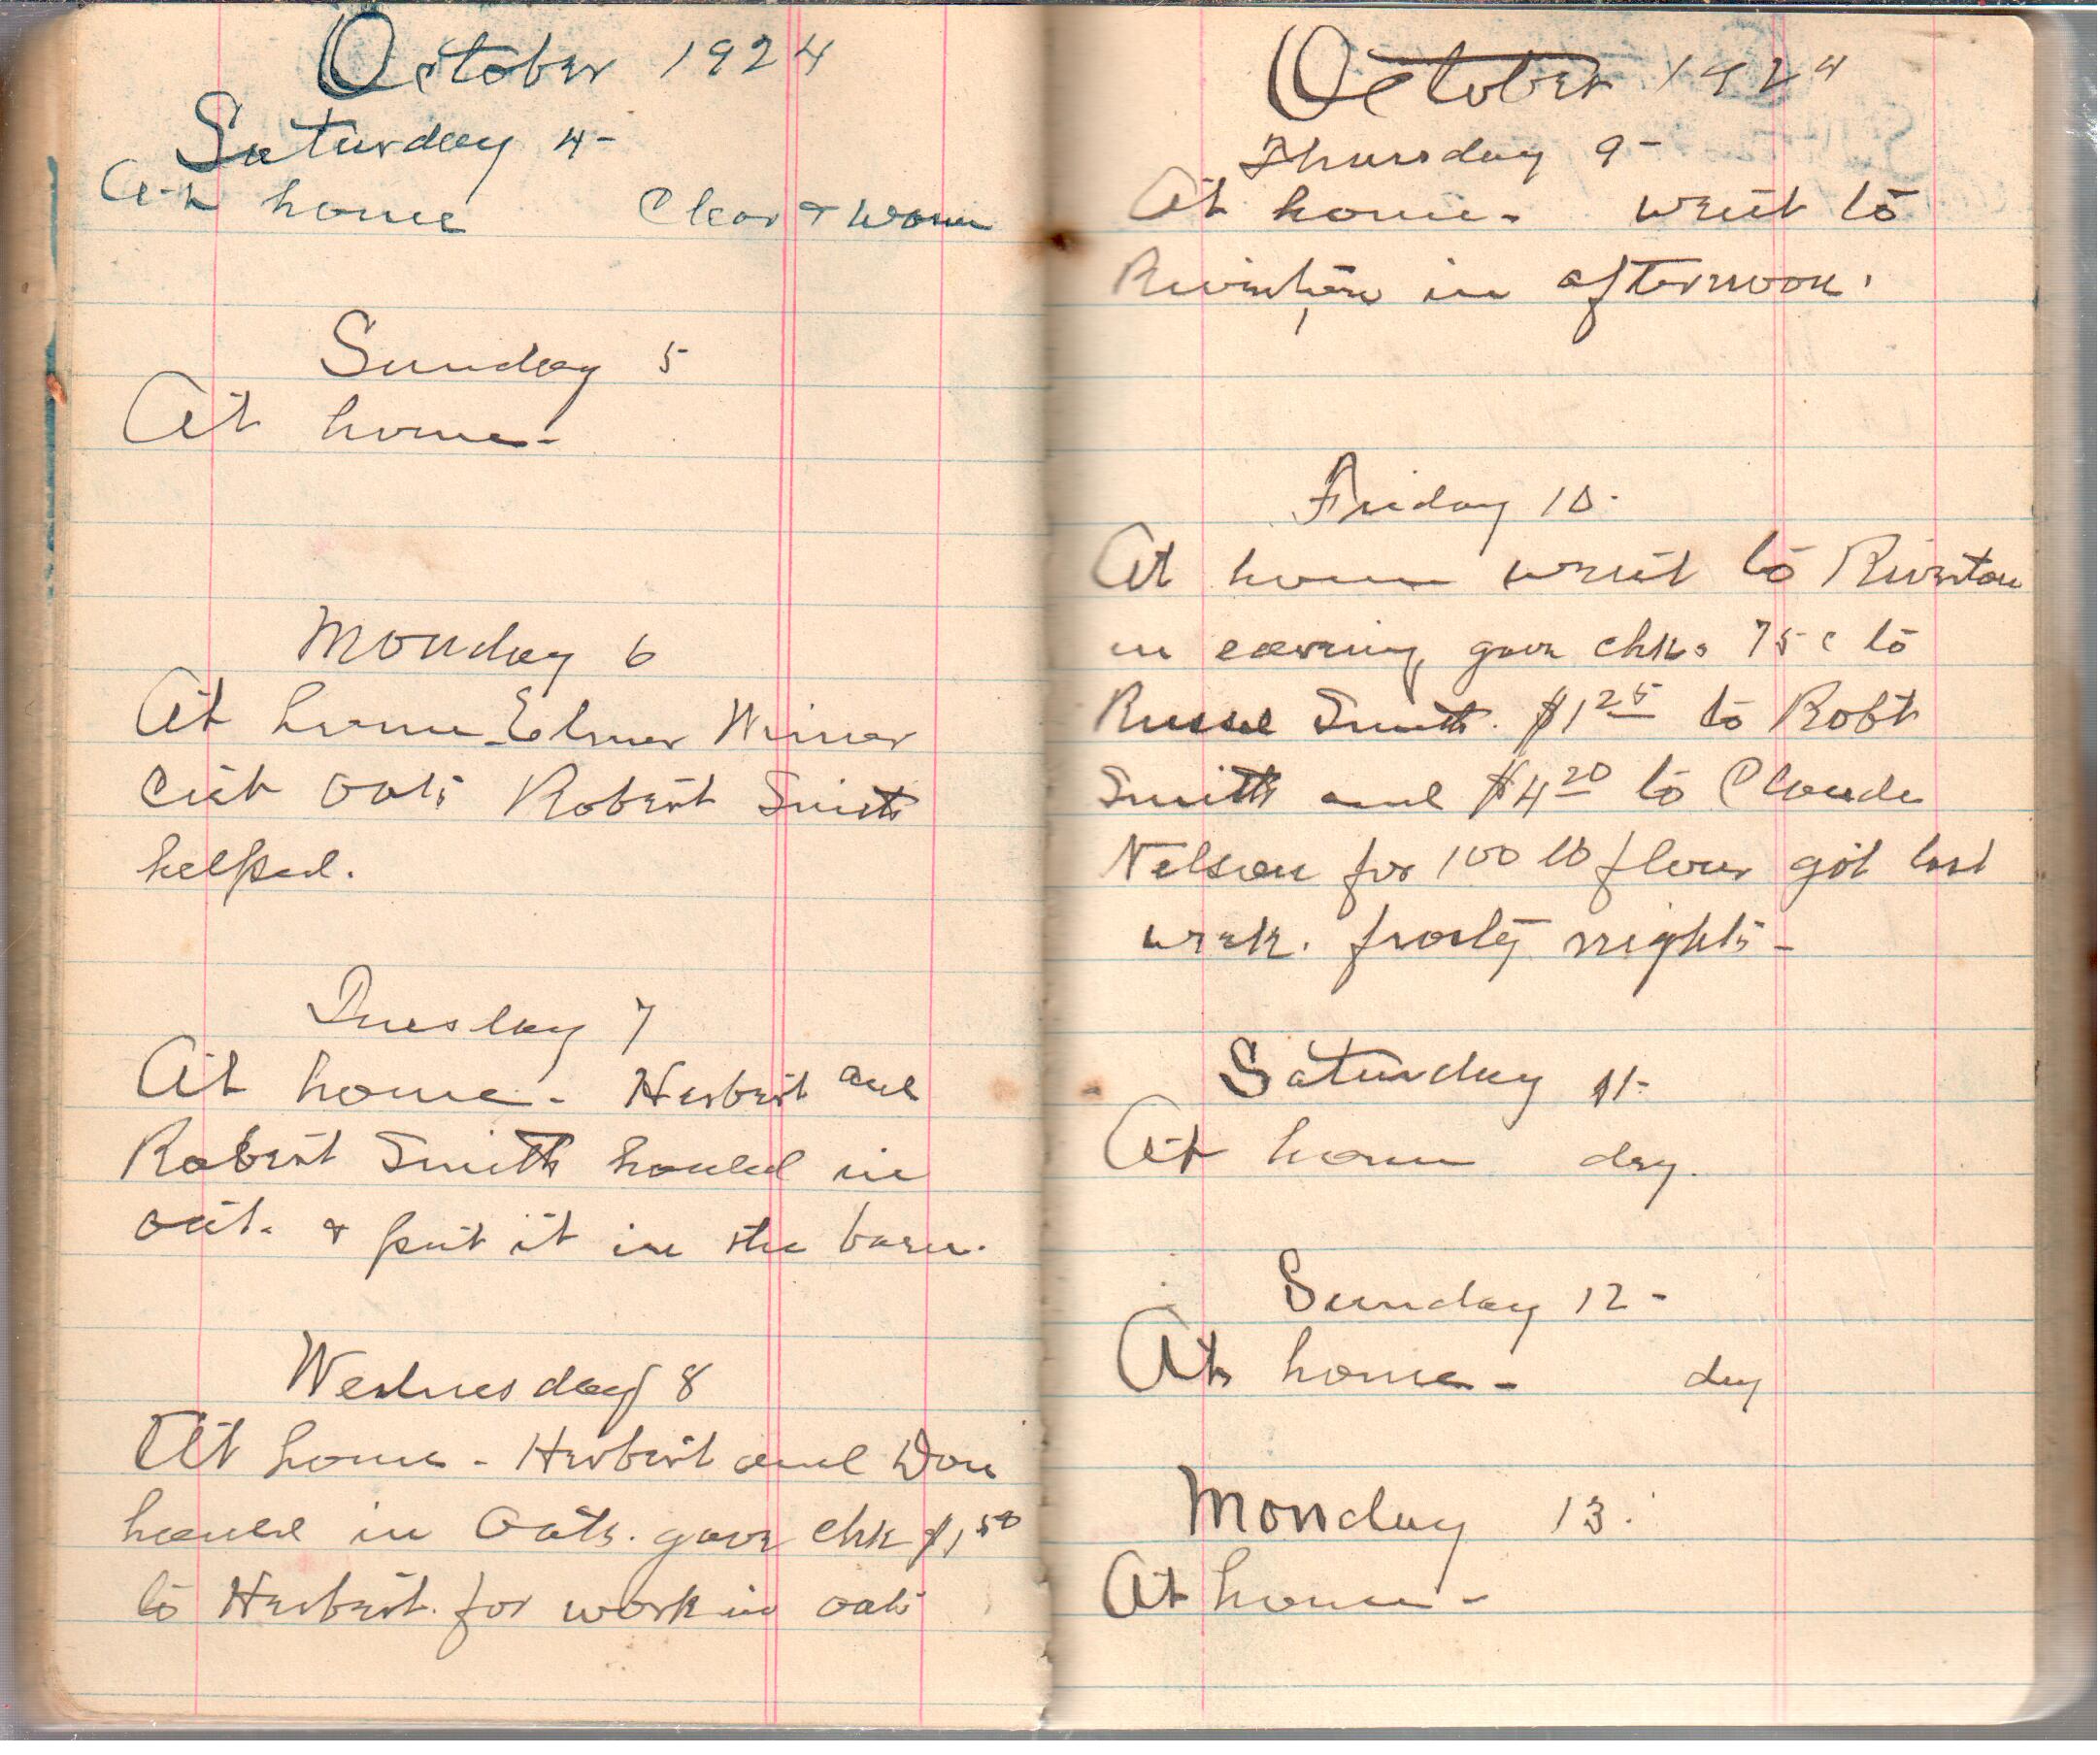 October 1924
Saturday 4-
At home Clear & warm
Sunday 5
At home-
Monday 6
At home Elmer
Cut oats Robert Smith
helped.
Tuesday 7
At home- Herbert and
Robert Smith hauled in
oat. & put it in the barn.
Wednesday 8
At home- Herbert and Don
hauled in Oats. gave chk $1,50
to Herbert. for work in oats
October 1924
Thursday 9-
At home- went to
Riverton in afternoon.
Friday 10-
At home went to Riverton
in evening gave chks 75c to
Russel Smith. $1 25 to Robt
Smith and $4 20 to Claude
Nelson for 100 lb flour got last
week. frosty nights-
Saturday 11-
At home dry.
Sunday 12-
At home- dry
Monday 13.
At home-